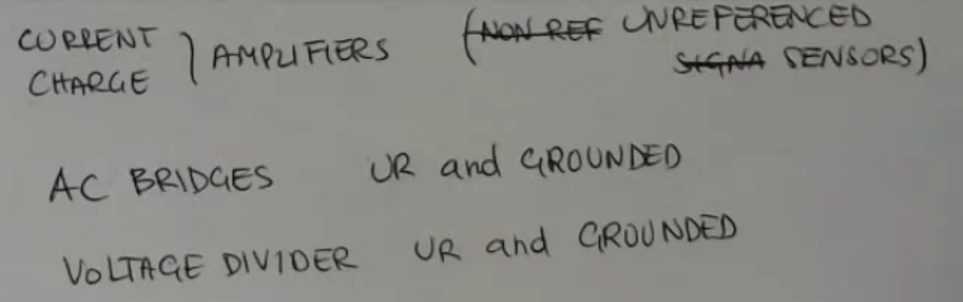 CURRENT
CHARGE } AMPLIFIERS (NON REF UNREFERENCED
SIGNA SENSORS)
AC BRIDGES UR and GROUNDED
VOLTAGE DIVIDER UR and GROUNDED